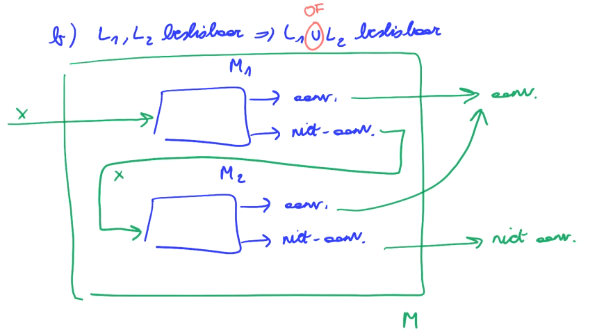 OF
b) L1, L2 beslisbaar => L1 ∪ L2 beslisbaar
M1
x
aanv.
aanv.
niet-aanv.
x
M2
aanv.
niet-aanv.
niet aanv.
M